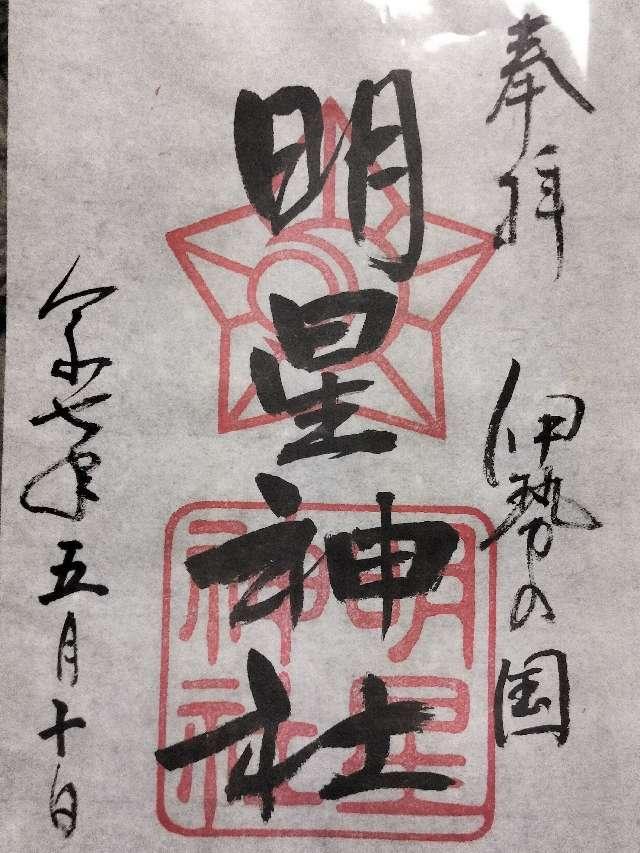 奉拝
伊勢の国
明星神社
明星
神社
令和七年五月十日